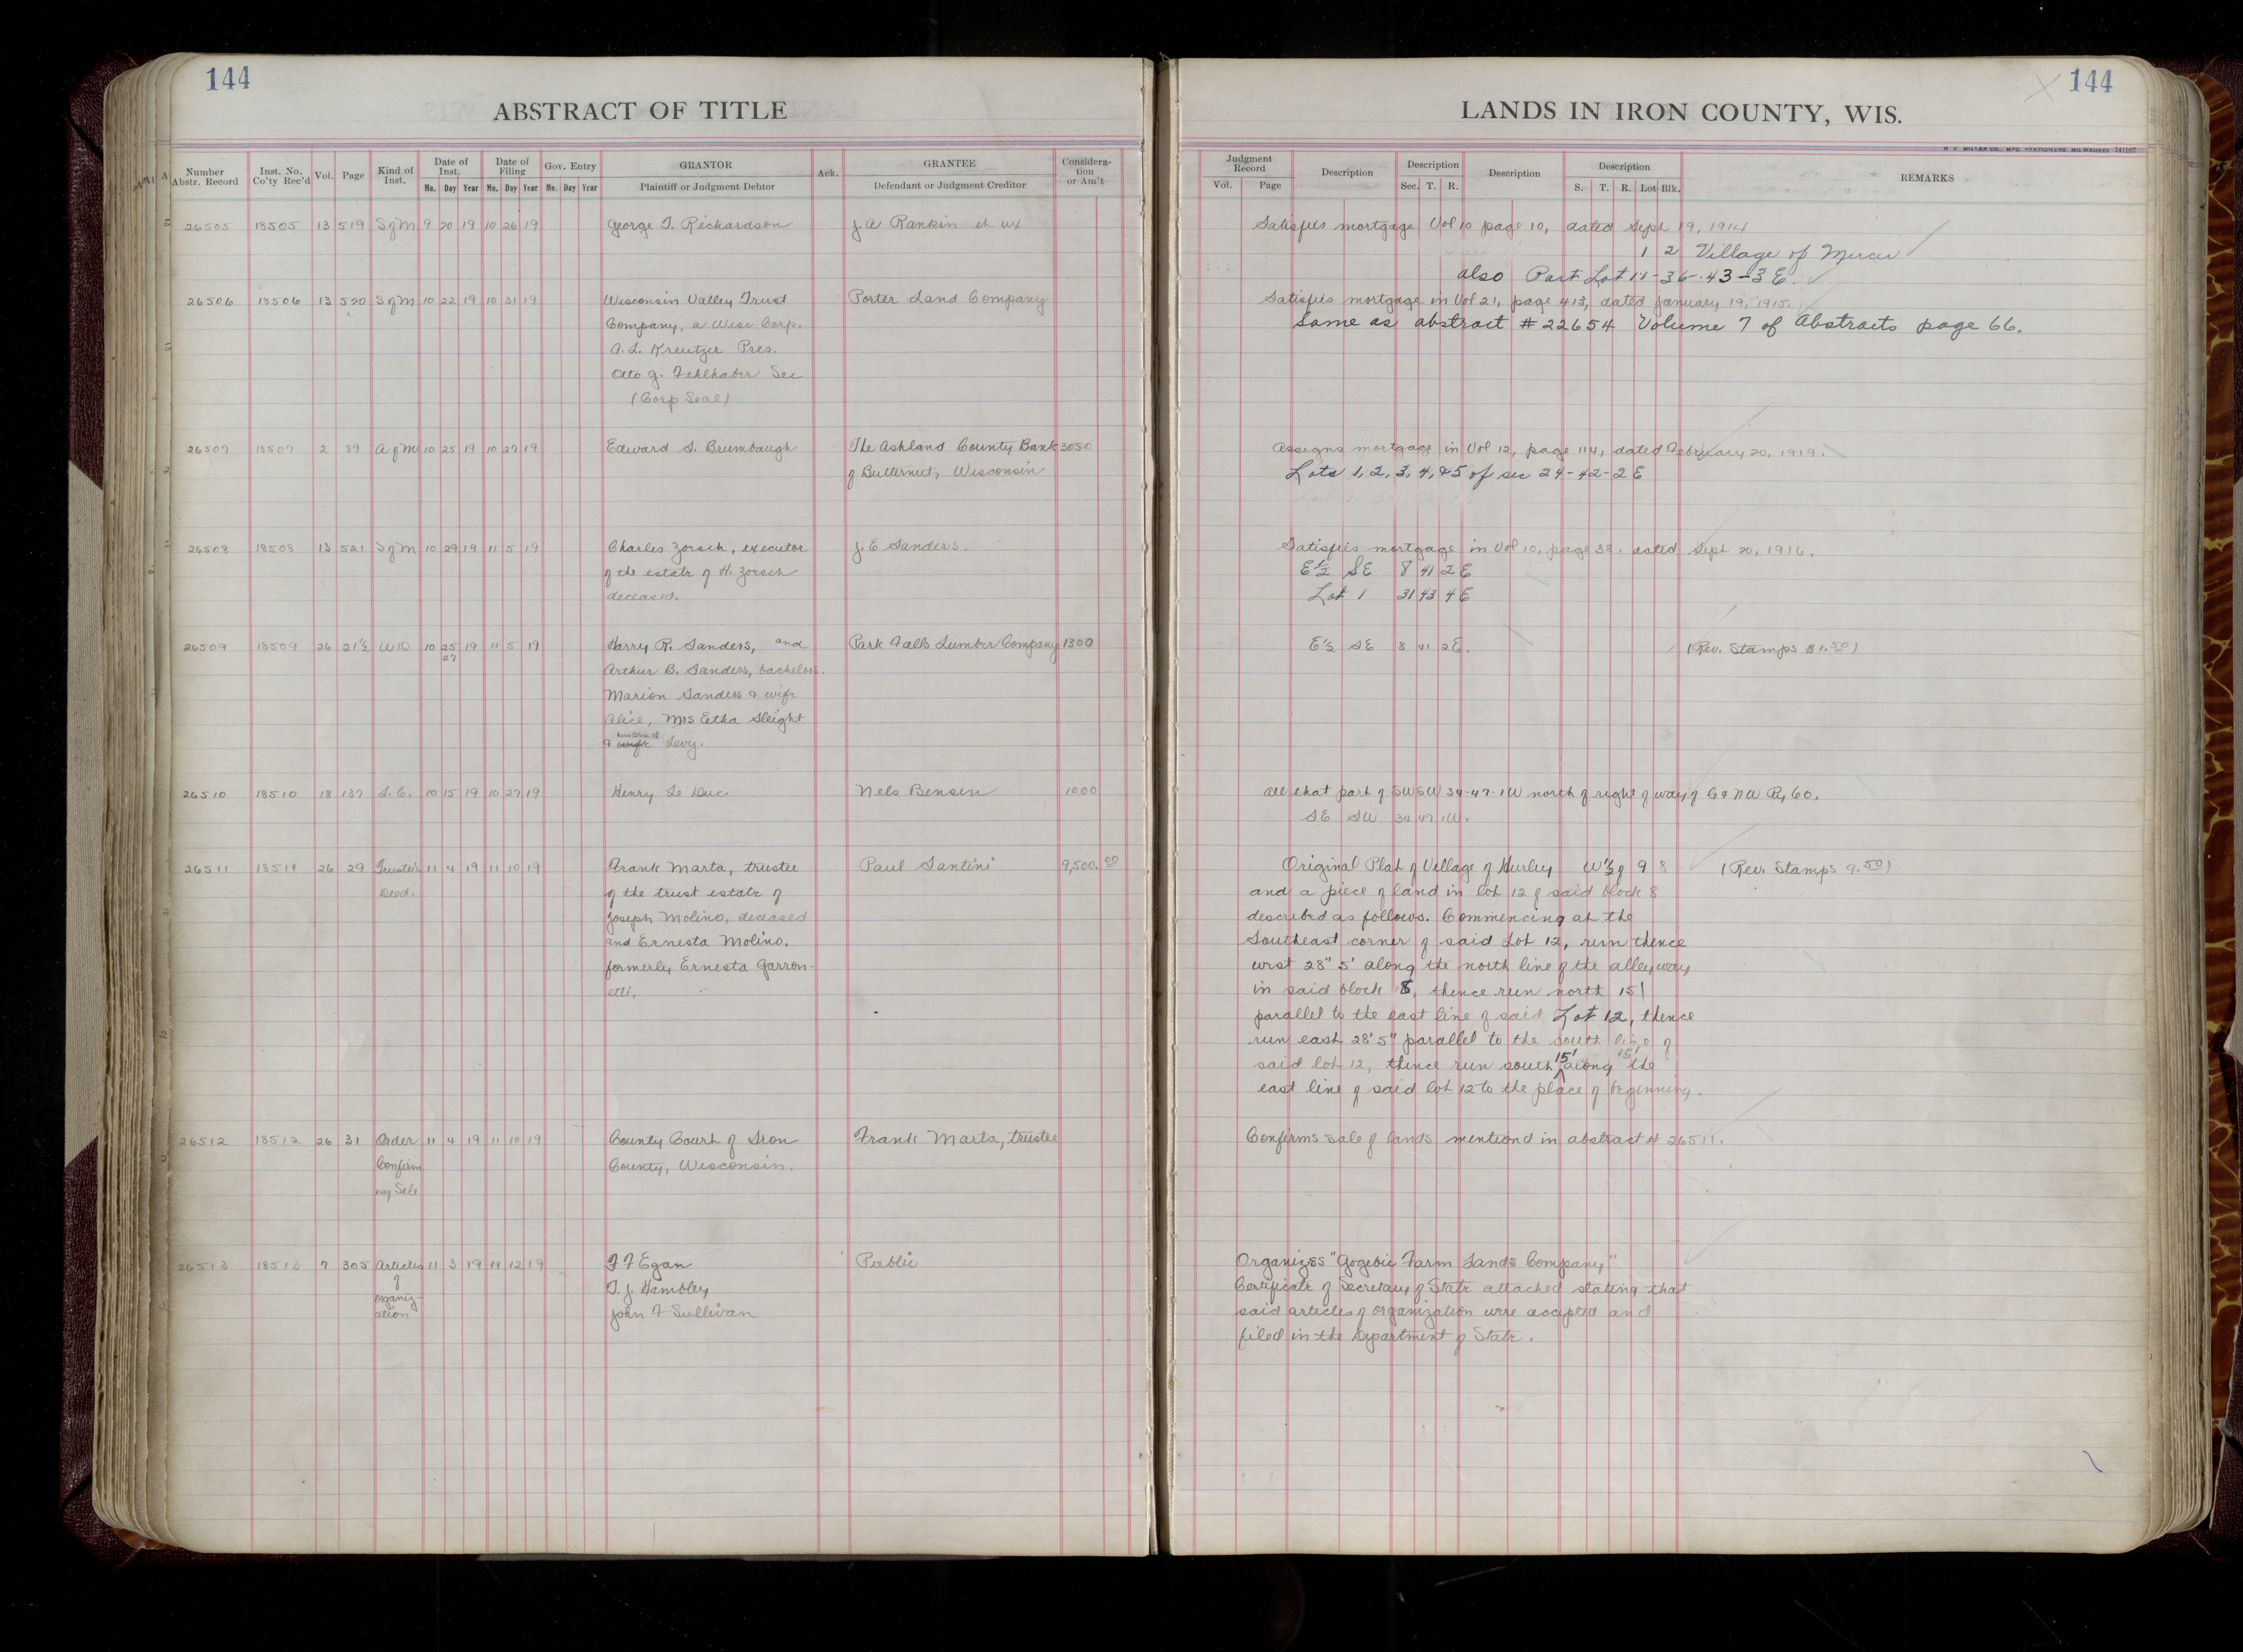 144
ABSTRACT OF TITLE
Number Abstr. Record
Inst. No. Co'ty Rec'd
Vol.
Page
Kind of Inst.
Date of Inst.
Mo. Day Year
Date of Filing
Mo. Day Year
Gov. Entry
Mo. Day Year
GRANTOR
Plaintiff or Judgment Debtor
Ack.
GRANTEE
Defendant or Judgment Creditor
Considera-tion or Am't
26505 18505 13 519 S of M 9 20 19 10 26 19 George T. Richardson J. A Rankin et ux
26506 18506 13 520 S of M 10 22 19 10 31 19 Wisconsin Valley Trust Porter Land Company
Company, a Wisc Corp.
A. L. Kreutzer Pres.
Otto G. Fehlhaber Sec
(Corp Seal)
26507 18507 2 89 A of M 10 25 19 10 27 19 Edward S. Brumbaugh The Ashland County Bank 3050
of Butternut, Wisconsin
26508 18508 13 521 S of M 10 29 19 11 5 19 Charles Zorsch, executor J. E Sanders.
of the estate of H. Zorsch
deceased.
26509 18509 26 21½ WD 10 25 19 11 5 19 Harry R. Sanders, and Park Falls Lumber Company 1300
27
Arthur B. Sanders, bachelors.
Marion Sanders & wife
Alice, Mrs Etha Sleight
& wife husband Levy.
26510 18510 18 137 L. C. 10 15 19 10 27 19 Henry Le Duc Nels Bensen 1000
26511 18511 26 29 Trustee's 11 4 19 11 10 19 Frank Marta, trustee Paul Santini 9,500.00
Deed. of the trust estate of
Joseph Molino, deceased
and Ernesta Molino.
formerly Ernesta Garron-
etti.
26512 18512 26 31 Order 11 4 19 11 10 19 County Court of Iron Frank Marta, trustee
Confirm County, Wisconsin.
ing Sale
26513 18513 7 305 Articles 11 3 19 11 12 19 F F Egan Public
of T. J. Hambley
organiz-
ation John F Sullivan
LANDS IN IRON COUNTY, WIS.
144
H. C. MILLER CO., MFG. STATIONERS, MILWAUKEE 141167
Judgment Record
Vol. Page
Description
Description
Sec. T. R.
Description
Description
S. T. R. Lot Blk.
REMARKS
Satisfies mortgage Vol 10 page 10, dated Sept 19, 1914
1 2 Village of Mercer
also Part Lot 11-36-43-3E.
Satisfies mortgage in Vol 21, page 413, dated January 19, 1915.
Same as abstract #22654 Volume 7 of Abstracts page 66.
Assigns mortgage in Vol 12, page 114, dated February 20, 1919.
Lots 1, 2, 3, 4, & 5 of sec 24-42-2E
Satisfies mortgage in Vol 10, page 38. dated Sept 20, 1916.
E½ SE 8 41 2E
Lot 1 31 43 4E
E½ SE 8 41 2E. (Rev. Stamps $1.50)
all that part of SW SW 34-47-1W north of right of way of C & NW Ry Co.
SE SW 34 47 1W.
Original Plat of Village of Hurley W½ of 9 8 (Rev. Stamps 9.50)
and a piece of land in lot 12 of said block 8
described as follows. Commencing at the
Southeast corner of said Lot 12, run thence
west 28" 5' along the north line of the alleyway
in said block 8, thence run north 15'
parallel to the east line of said Lot 12, thence
run east 28' 5" parallel to the south line of
said lot 12, thence run south 15' along 15' the
east line of said lot 12 to the place of beginning.
Confirms sale of lands mentiond in abstract # 26511.
Organizes "Gogebic Farm Lands Company"
Certificate of Secretary of State attached stating that
said articles of organization were accepted and
filed in the Department of State.